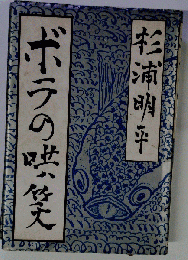 杉浦明平
ボラの哄笑